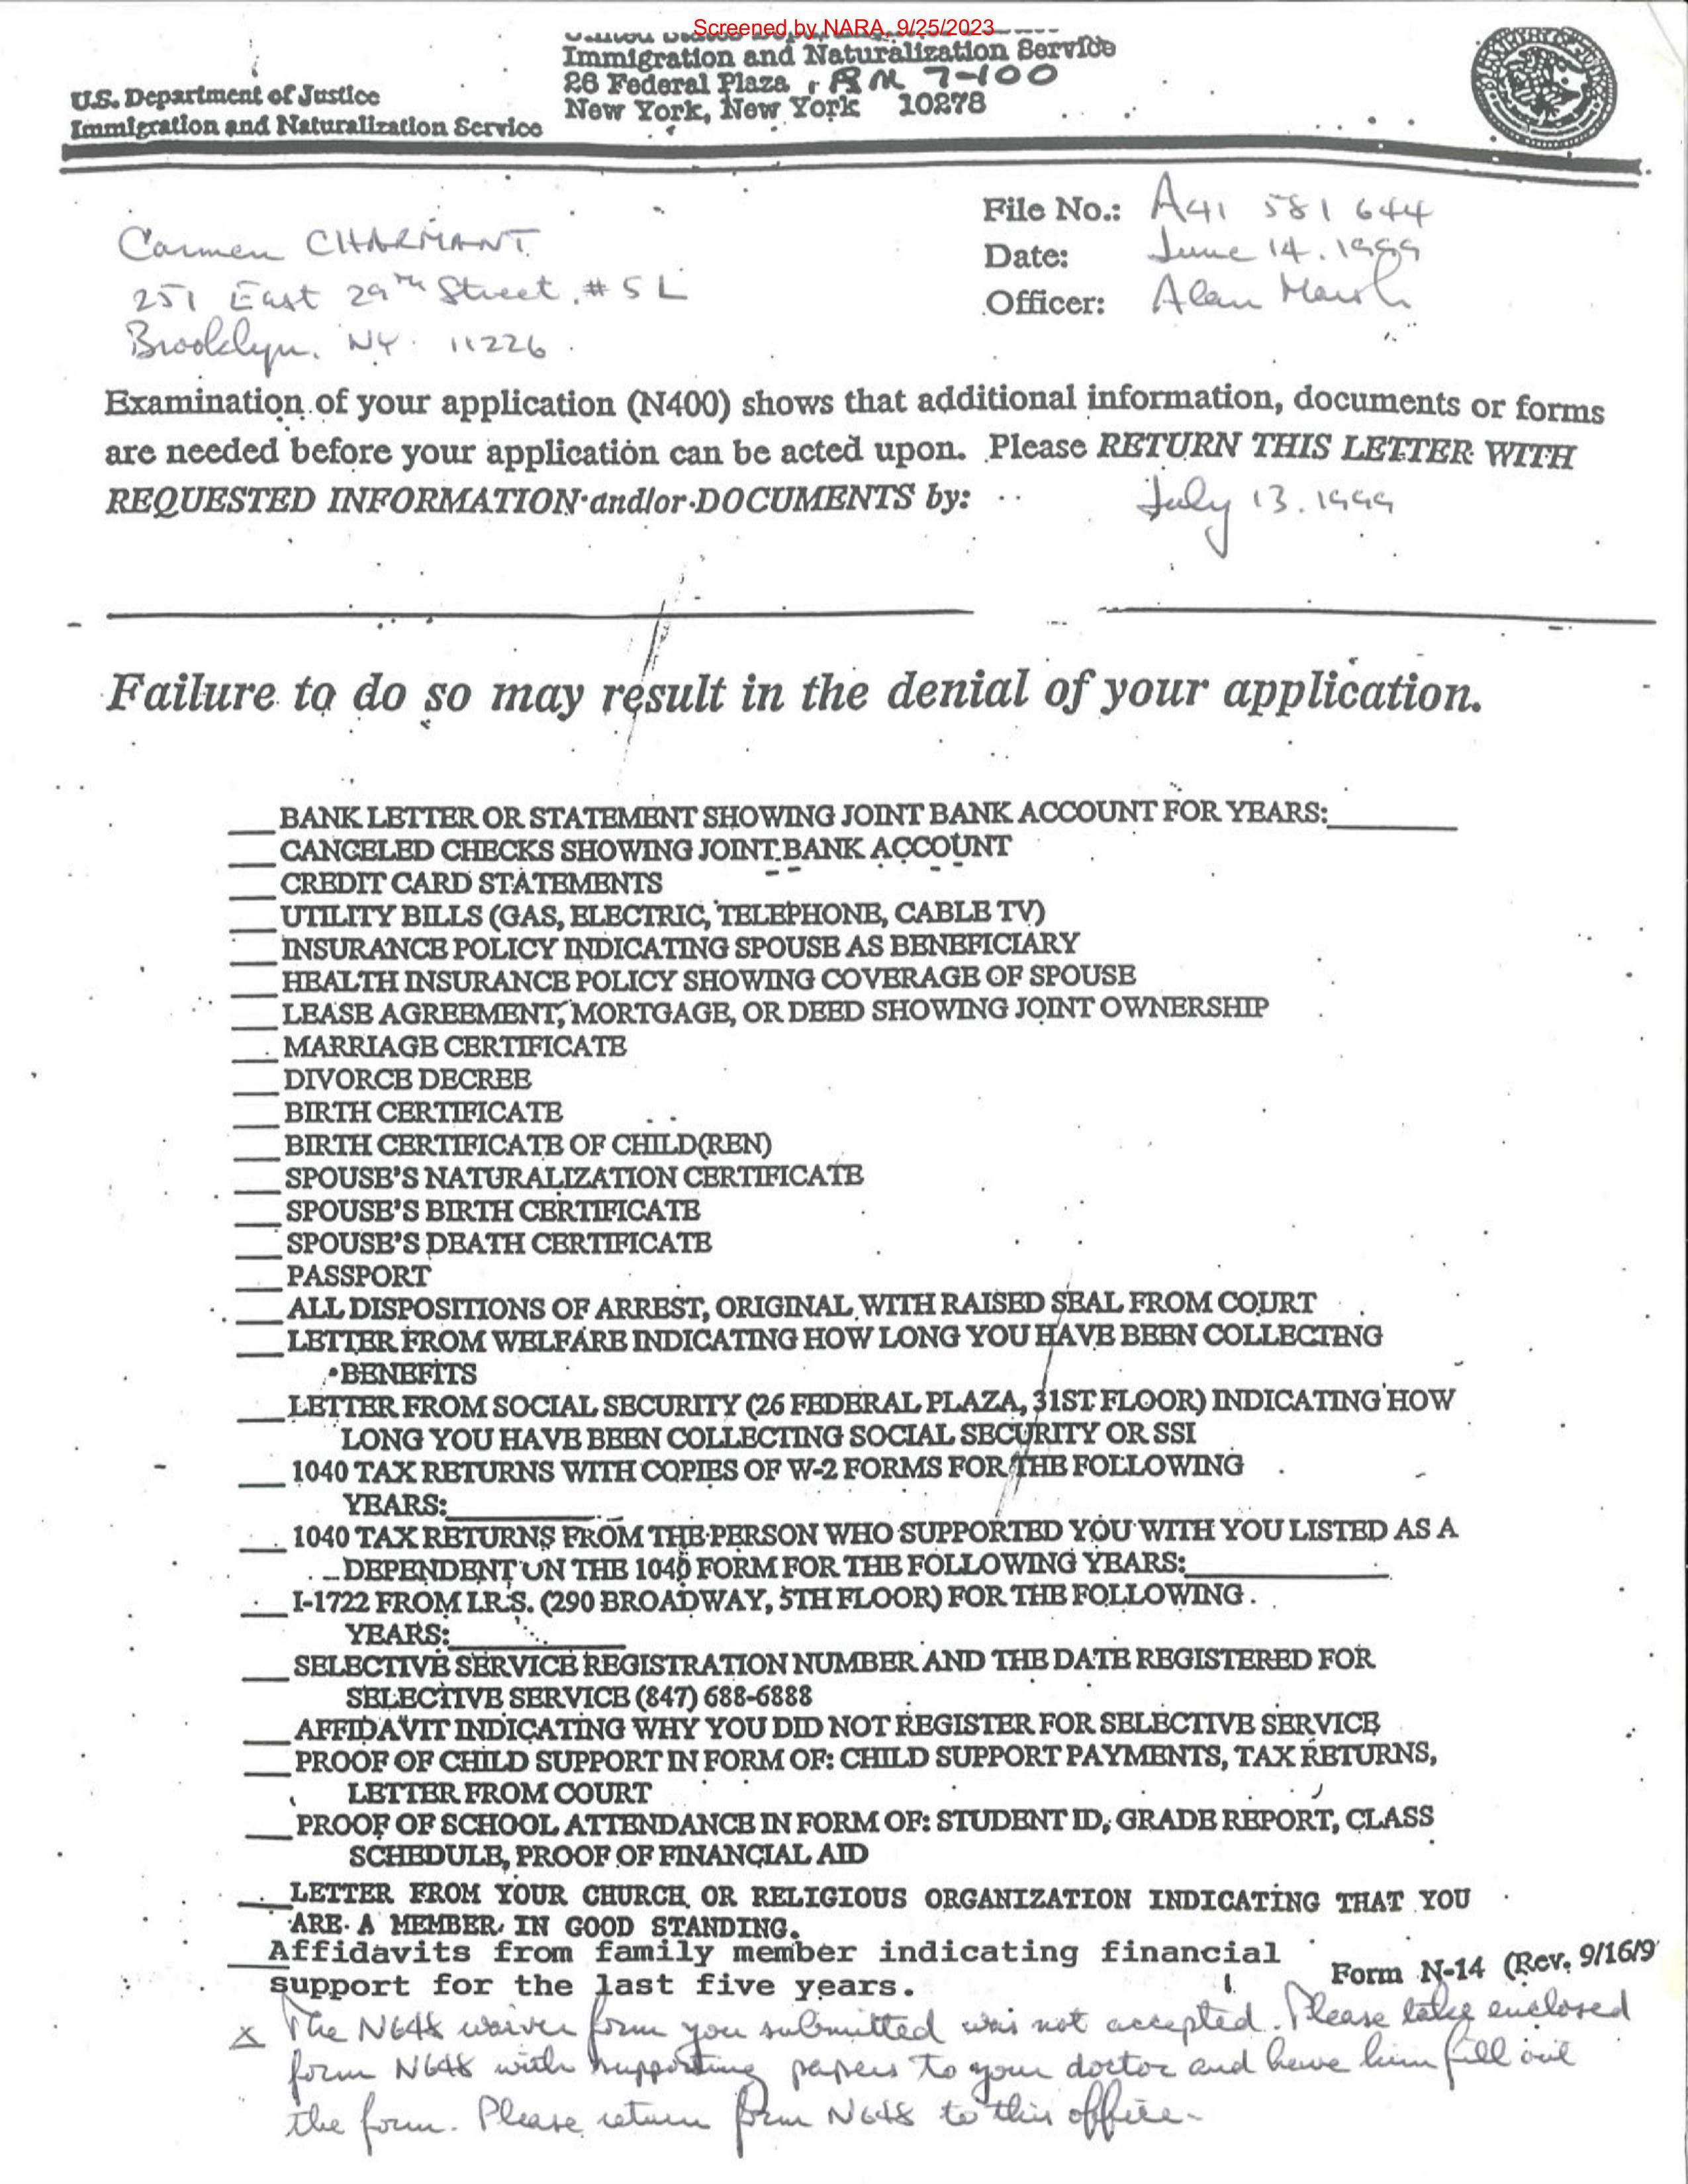 Screened by NARA, 9/25/2023
Immigration and Naturalization Service
26 Federal Plaza, RM 7-100
New York, New York 10278
U.S. Department of Justice
Immigration and Naturalization Service
File No.: A41 581 644
Date: June 14. 1999
Officer: Alan Marsh
Carmen CHARMANT.
251 East 29th Street, #5L
Brooklyn, NY. 11226.
Examination of your application (N400) shows that additional information, documents or forms
are needed before your application can be acted upon. Please RETURN THIS LETTER WITH
REQUESTED INFORMATION and/or DOCUMENTS by: July 13. 1999
Failure to do so may result in the denial of your application.
___ BANK LETTER OR STATEMENT SHOWING JOINT BANK ACCOUNT FOR YEARS:________
___ CANCELED CHECKS SHOWING JOINT BANK ACCOUNT
___ CREDIT CARD STATEMENTS
___ UTILITY BILLS (GAS, ELECTRIC, TELEPHONE, CABLE TV)
___ INSURANCE POLICY INDICATING SPOUSE AS BENEFICIARY
___ HEALTH INSURANCE POLICY SHOWING COVERAGE OF SPOUSE
___ LEASE AGREEMENT, MORTGAGE, OR DEED SHOWING JOINT OWNERSHIP
___ MARRIAGE CERTIFICATE
___ DIVORCE DECREE
___ BIRTH CERTIFICATE
___ BIRTH CERTIFICATE OF CHILD(REN)
___ SPOUSE'S NATURALIZATION CERTIFICATE
___ SPOUSE'S BIRTH CERTIFICATE
___ SPOUSE'S DEATH CERTIFICATE
___ PASSPORT
___ ALL DISPOSITIONS OF ARREST, ORIGINAL WITH RAISED SEAL FROM COURT
___ LETTER FROM WELFARE INDICATING HOW LONG YOU HAVE BEEN COLLECTING
BENEFITS
___ LETTER FROM SOCIAL SECURITY (26 FEDERAL PLAZA, 31ST FLOOR) INDICATING HOW
LONG YOU HAVE BEEN COLLECTING SOCIAL SECURITY OR SSI
___ 1040 TAX RETURNS WITH COPIES OF W-2 FORMS FOR THE FOLLOWING
YEARS:________
___ 1040 TAX RETURNS FROM THE PERSON WHO SUPPORTED YOU WITH YOU LISTED AS A
DEPENDENT ON THE 1040 FORM FOR THE FOLLOWING YEARS:________
___ I-1722 FROM I.R.S. (290 BROADWAY, 5TH FLOOR) FOR THE FOLLOWING
YEARS:________
___ SELECTIVE SERVICE REGISTRATION NUMBER AND THE DATE REGISTERED FOR
SELECTIVE SERVICE (847) 688-6888
___ AFFIDAVIT INDICATING WHY YOU DID NOT REGISTER FOR SELECTIVE SERVICE
___ PROOF OF CHILD SUPPORT IN FORM OF: CHILD SUPPORT PAYMENTS, TAX RETURNS,
LETTER FROM COURT
___ PROOF OF SCHOOL ATTENDANCE IN FORM OF: STUDENT ID, GRADE REPORT, CLASS
SCHEDULE, PROOF OF FINANCIAL AID
___ LETTER FROM YOUR CHURCH OR RELIGIOUS ORGANIZATION INDICATING THAT YOU
ARE A MEMBER IN GOOD STANDING.
___ Affidavits from family member indicating financial
support for the last five years.
Form N-14 (Rev. 9/16/9
x The N648 waiver form you submitted was not accepted. Please take enclosed
form N648 with supporting papers to your doctor and have him fill out
the form. Please return form N648 to this office.